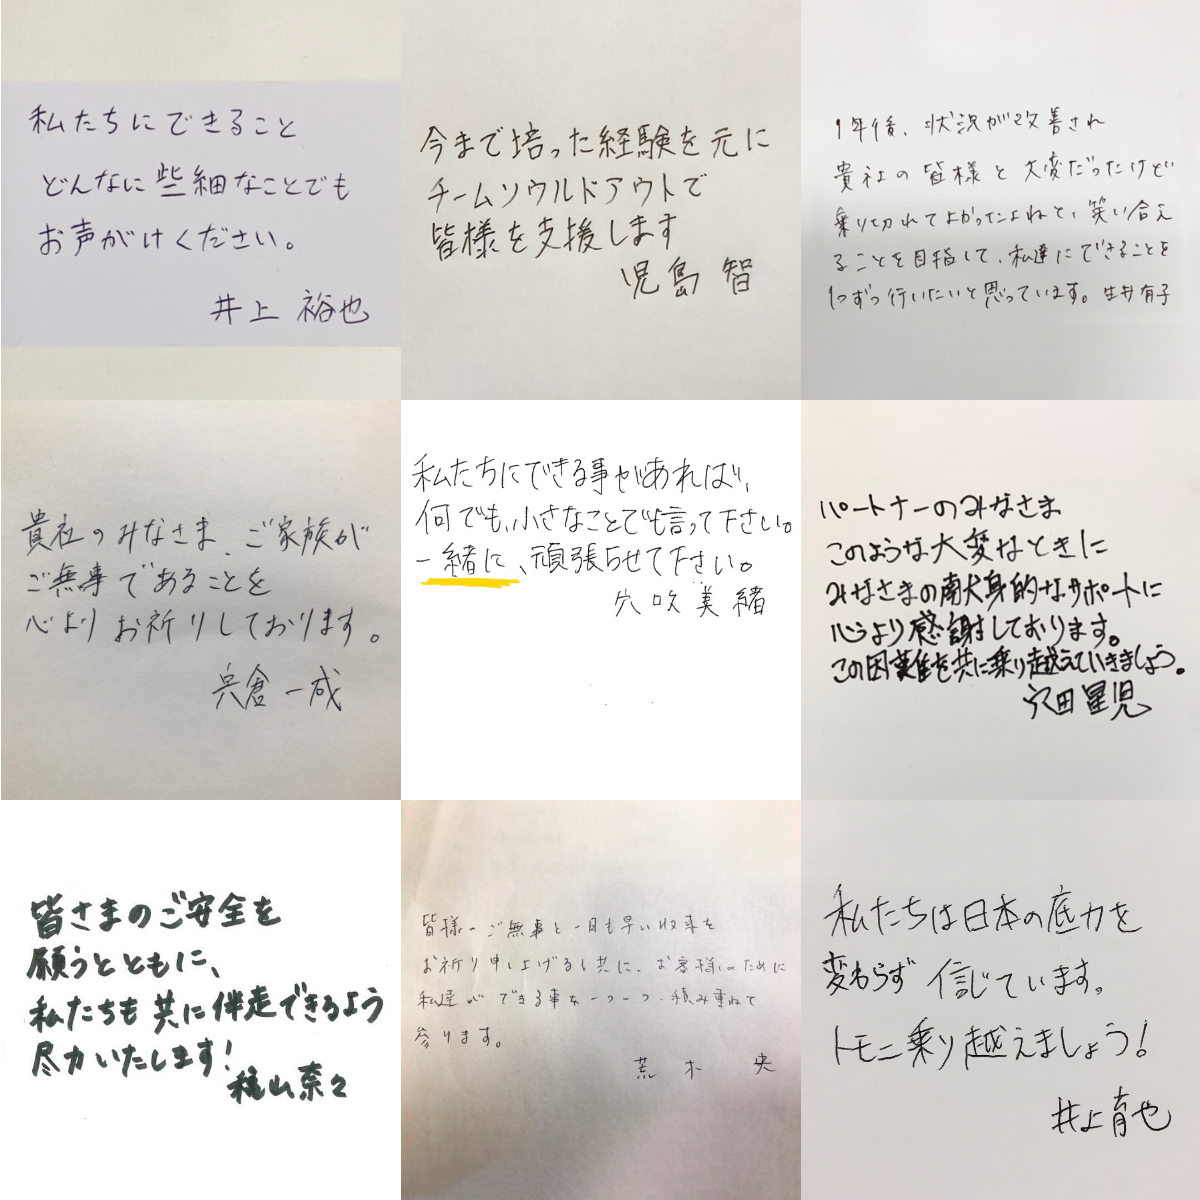 私たちにできること
どんなに些細なことでも
お声がけください。
井上 裕也
今まで培った経験を元に
チームソウルドアウトで
皆様を支援します
児島 智
1年後、状況が改善され
貴社の皆様と大変だったけど
乗り切れてよかったよねと、笑い合え
ることを目指して、私達にできることを
1つずつ行いたいと思っています。生井有子
貴社のみなさま、ご家族が
ご無事であることを
心よりお祈りしております。
兵倉一成
私たちにできる事があれば、
何でも、小さなことでも言って下さい。
一緒に、頑張らせて下さい。
穴吹美緒
パートナーのみなさま
このような大変なときに
みなさまの献身的なサポートに
心より感謝しております。
この困難を共に乗り越えていきましょう。
穴田星児
皆さまのご安全を
願うとともに、
私たちも共に伴走できるよう
尽力いたします!
穐山奈々
皆様のご無事と一日も早い収束を
お祈り申し上げると共に、お客様のために
私達ができる事を一つ一つ、積み重ねて
参ります。
荒木 央
私たちは日本の底力を
変わらず信じています。
トモニ乗り越えましょう!
井上育也